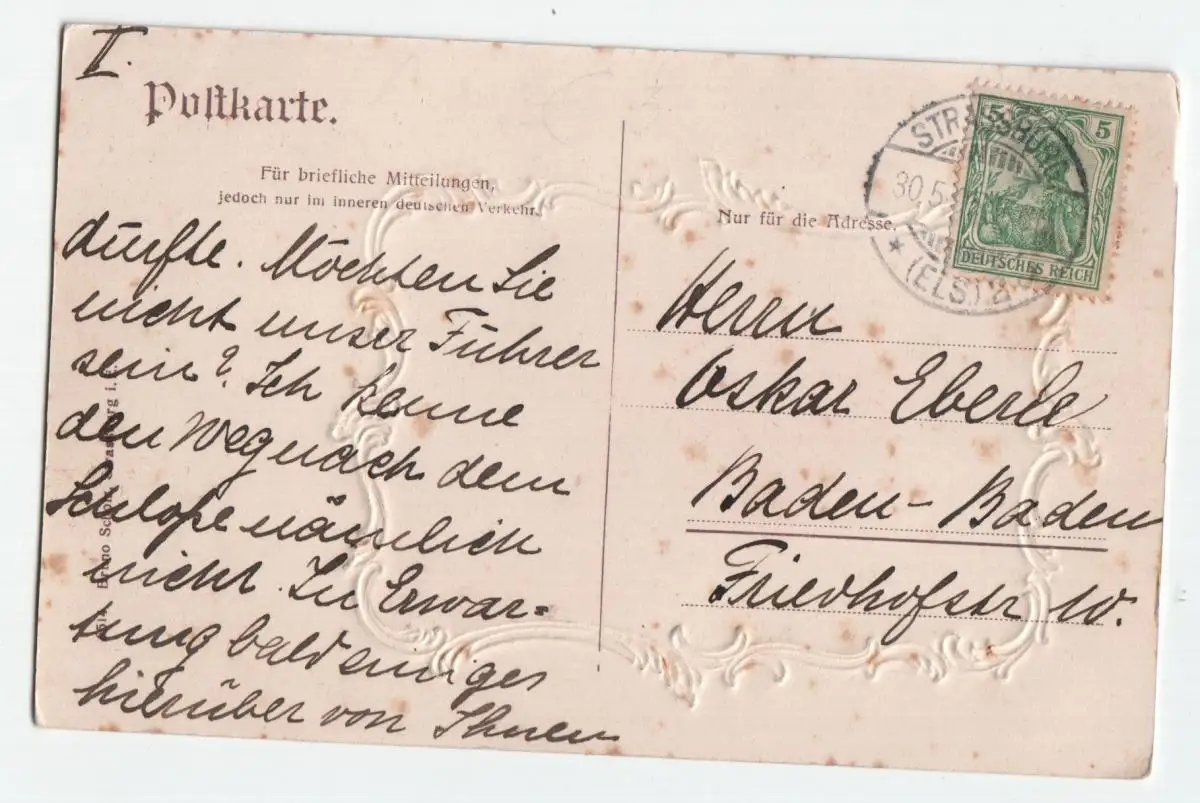 II.
Postkarte.
Für briefliche Mitteilungen,
jedoch nur im inneren deutschen Verkehr.
dürfte. Möchten Sie
nicht unser Führer
sein? Ich kenne
den Weg nach dem
Schloße nämlich
nicht. In Erwar=
tung bald einiges
hierüber von Ihnen
Bruno
rg i.
5
5
DEUTSCHES REICH
STRASSBURG
30.5
* (ELS.) 2
Nur für die Adresse.
Herrn
Oskar Eberle
Baden-Baden
Friedhofstr 10.